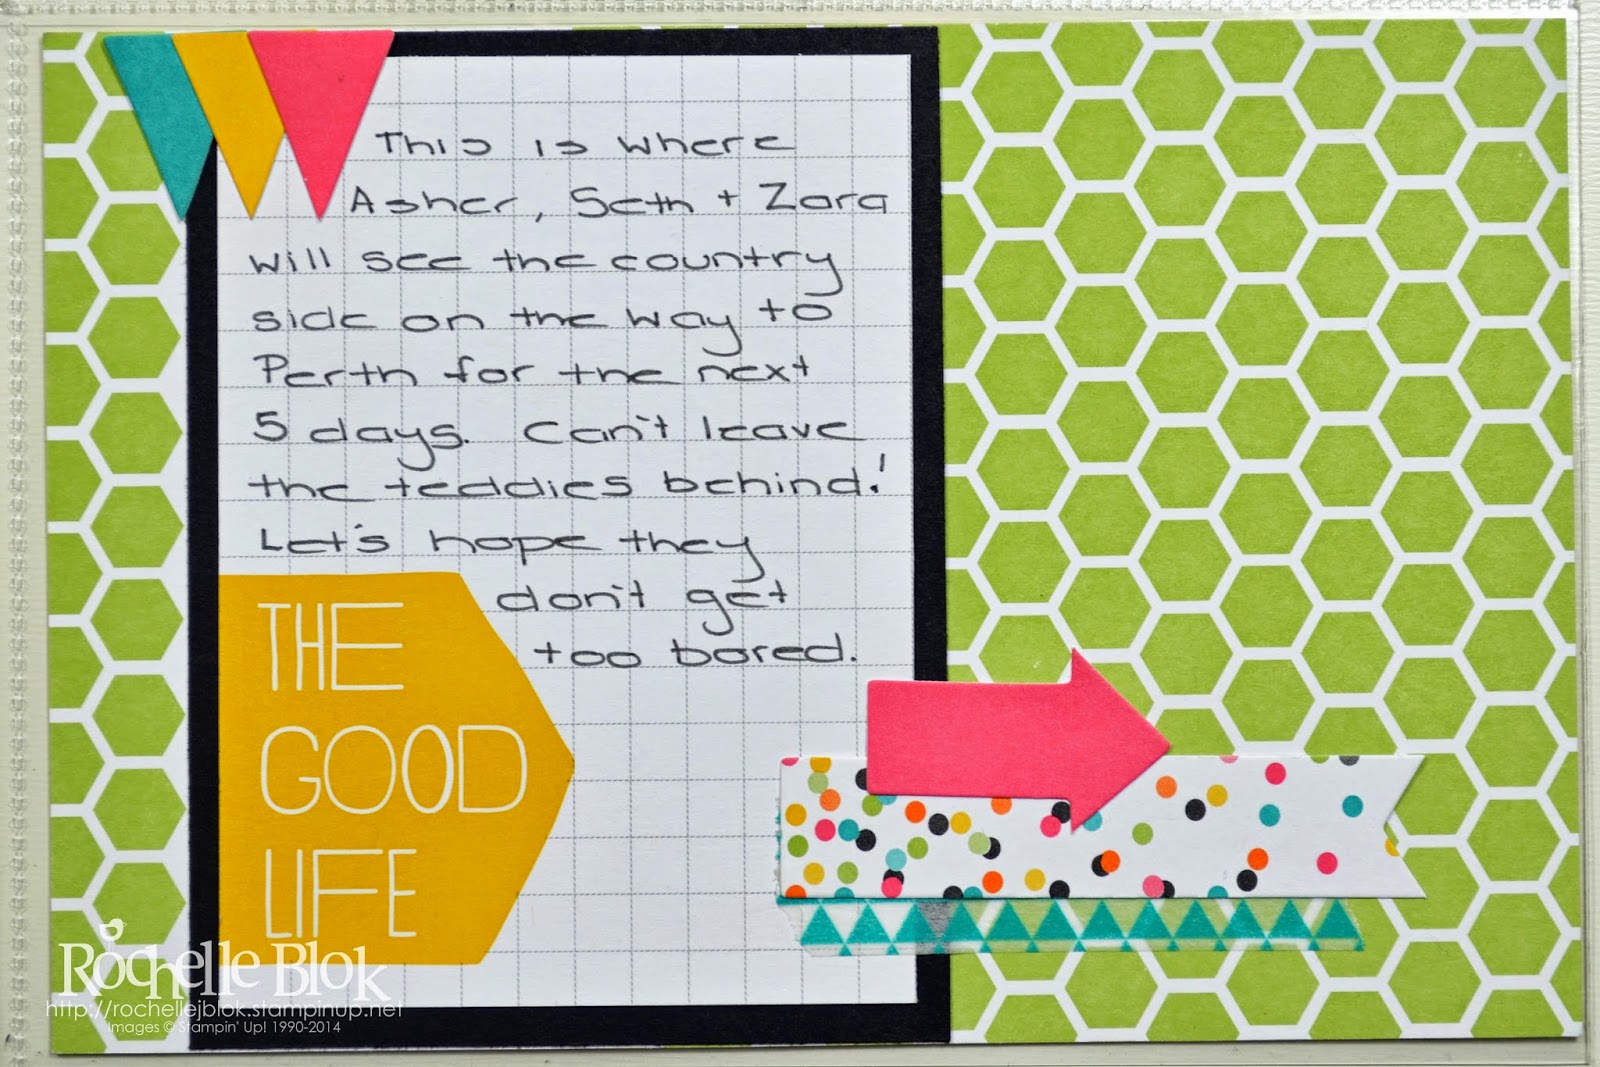 This is where
Asher, Seth + Zara
will see the country
side on the way to
Perth for the next
5 days. Can't leave
the teddies behind!
Let's hope they
don't get
too bored.
THE
GOOD
LIFE
Rochelle Blok
http://rochellejblok.stampinup.net
Images © Stampin' Up! 1990-2014